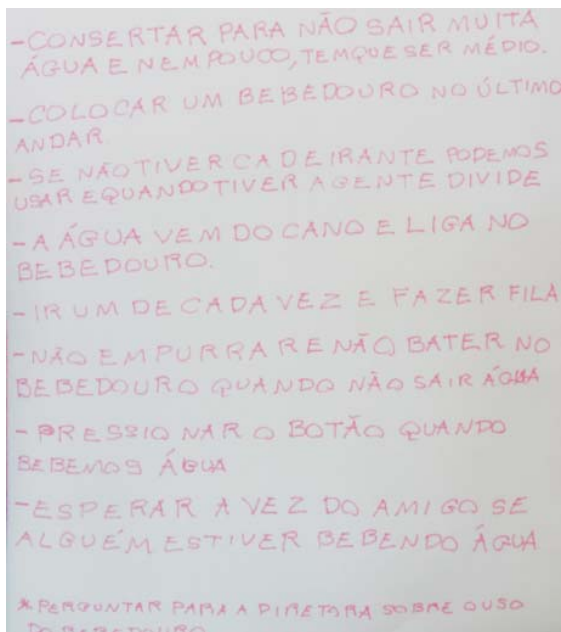 -CONSERTAR PARA NÃO SAIR MUITA
ÁGUA E NEM POUCO, TEM QUE SER MÉDIO.
-COLOCAR UM BEBEDOURO NO ÚLTIMO
ANDAR.
-SE NÃO TIVER CADEIRANTE PODEMOS
USAR E QUANDO TIVER A GENTE DIVIDE
-A ÁGUA VEM DO CANO E LIGA NO
BEBEDOURO.
-IR UM DE CADA VEZ E FAZER FILA
-NÃO EMPURRAR E NÃO BATER NO
BEBEDOURO QUANDO NÃO SAIR ÁGUA
-PRESSIONAR O BOTÃO QUANDO
BEBEMOS ÁGUA
-ESPERAR A VEZ DO AMIGO SE
ALGUÉM ESTIVER BEBENDO ÁGUA
*PERGUNTAR PARA A DIRETORA SOBRE O USO
DO BEBEDOURO